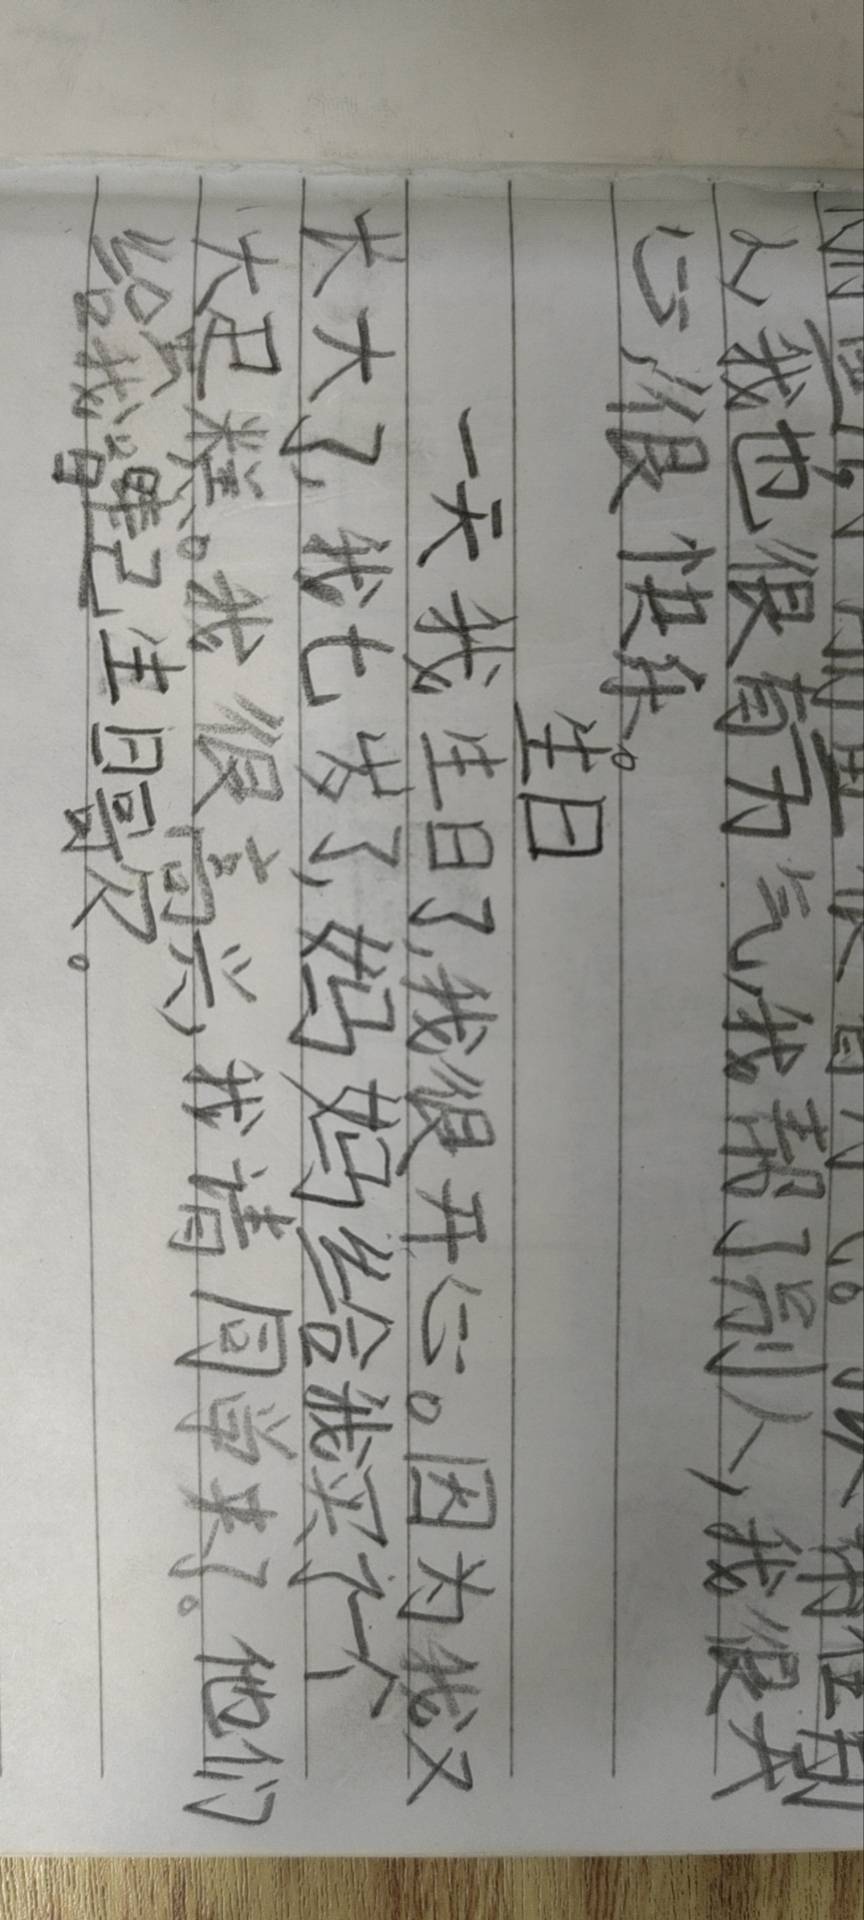 人我也很有力气,我帮了别人,我很开
心,很快乐。
生日
一天我生日了,我很开心。因为我又
长大了,我七岁了,妈妈给我买了一个
大旦糕。我很高兴,我请同学来了。他们
给我生日哥欠。